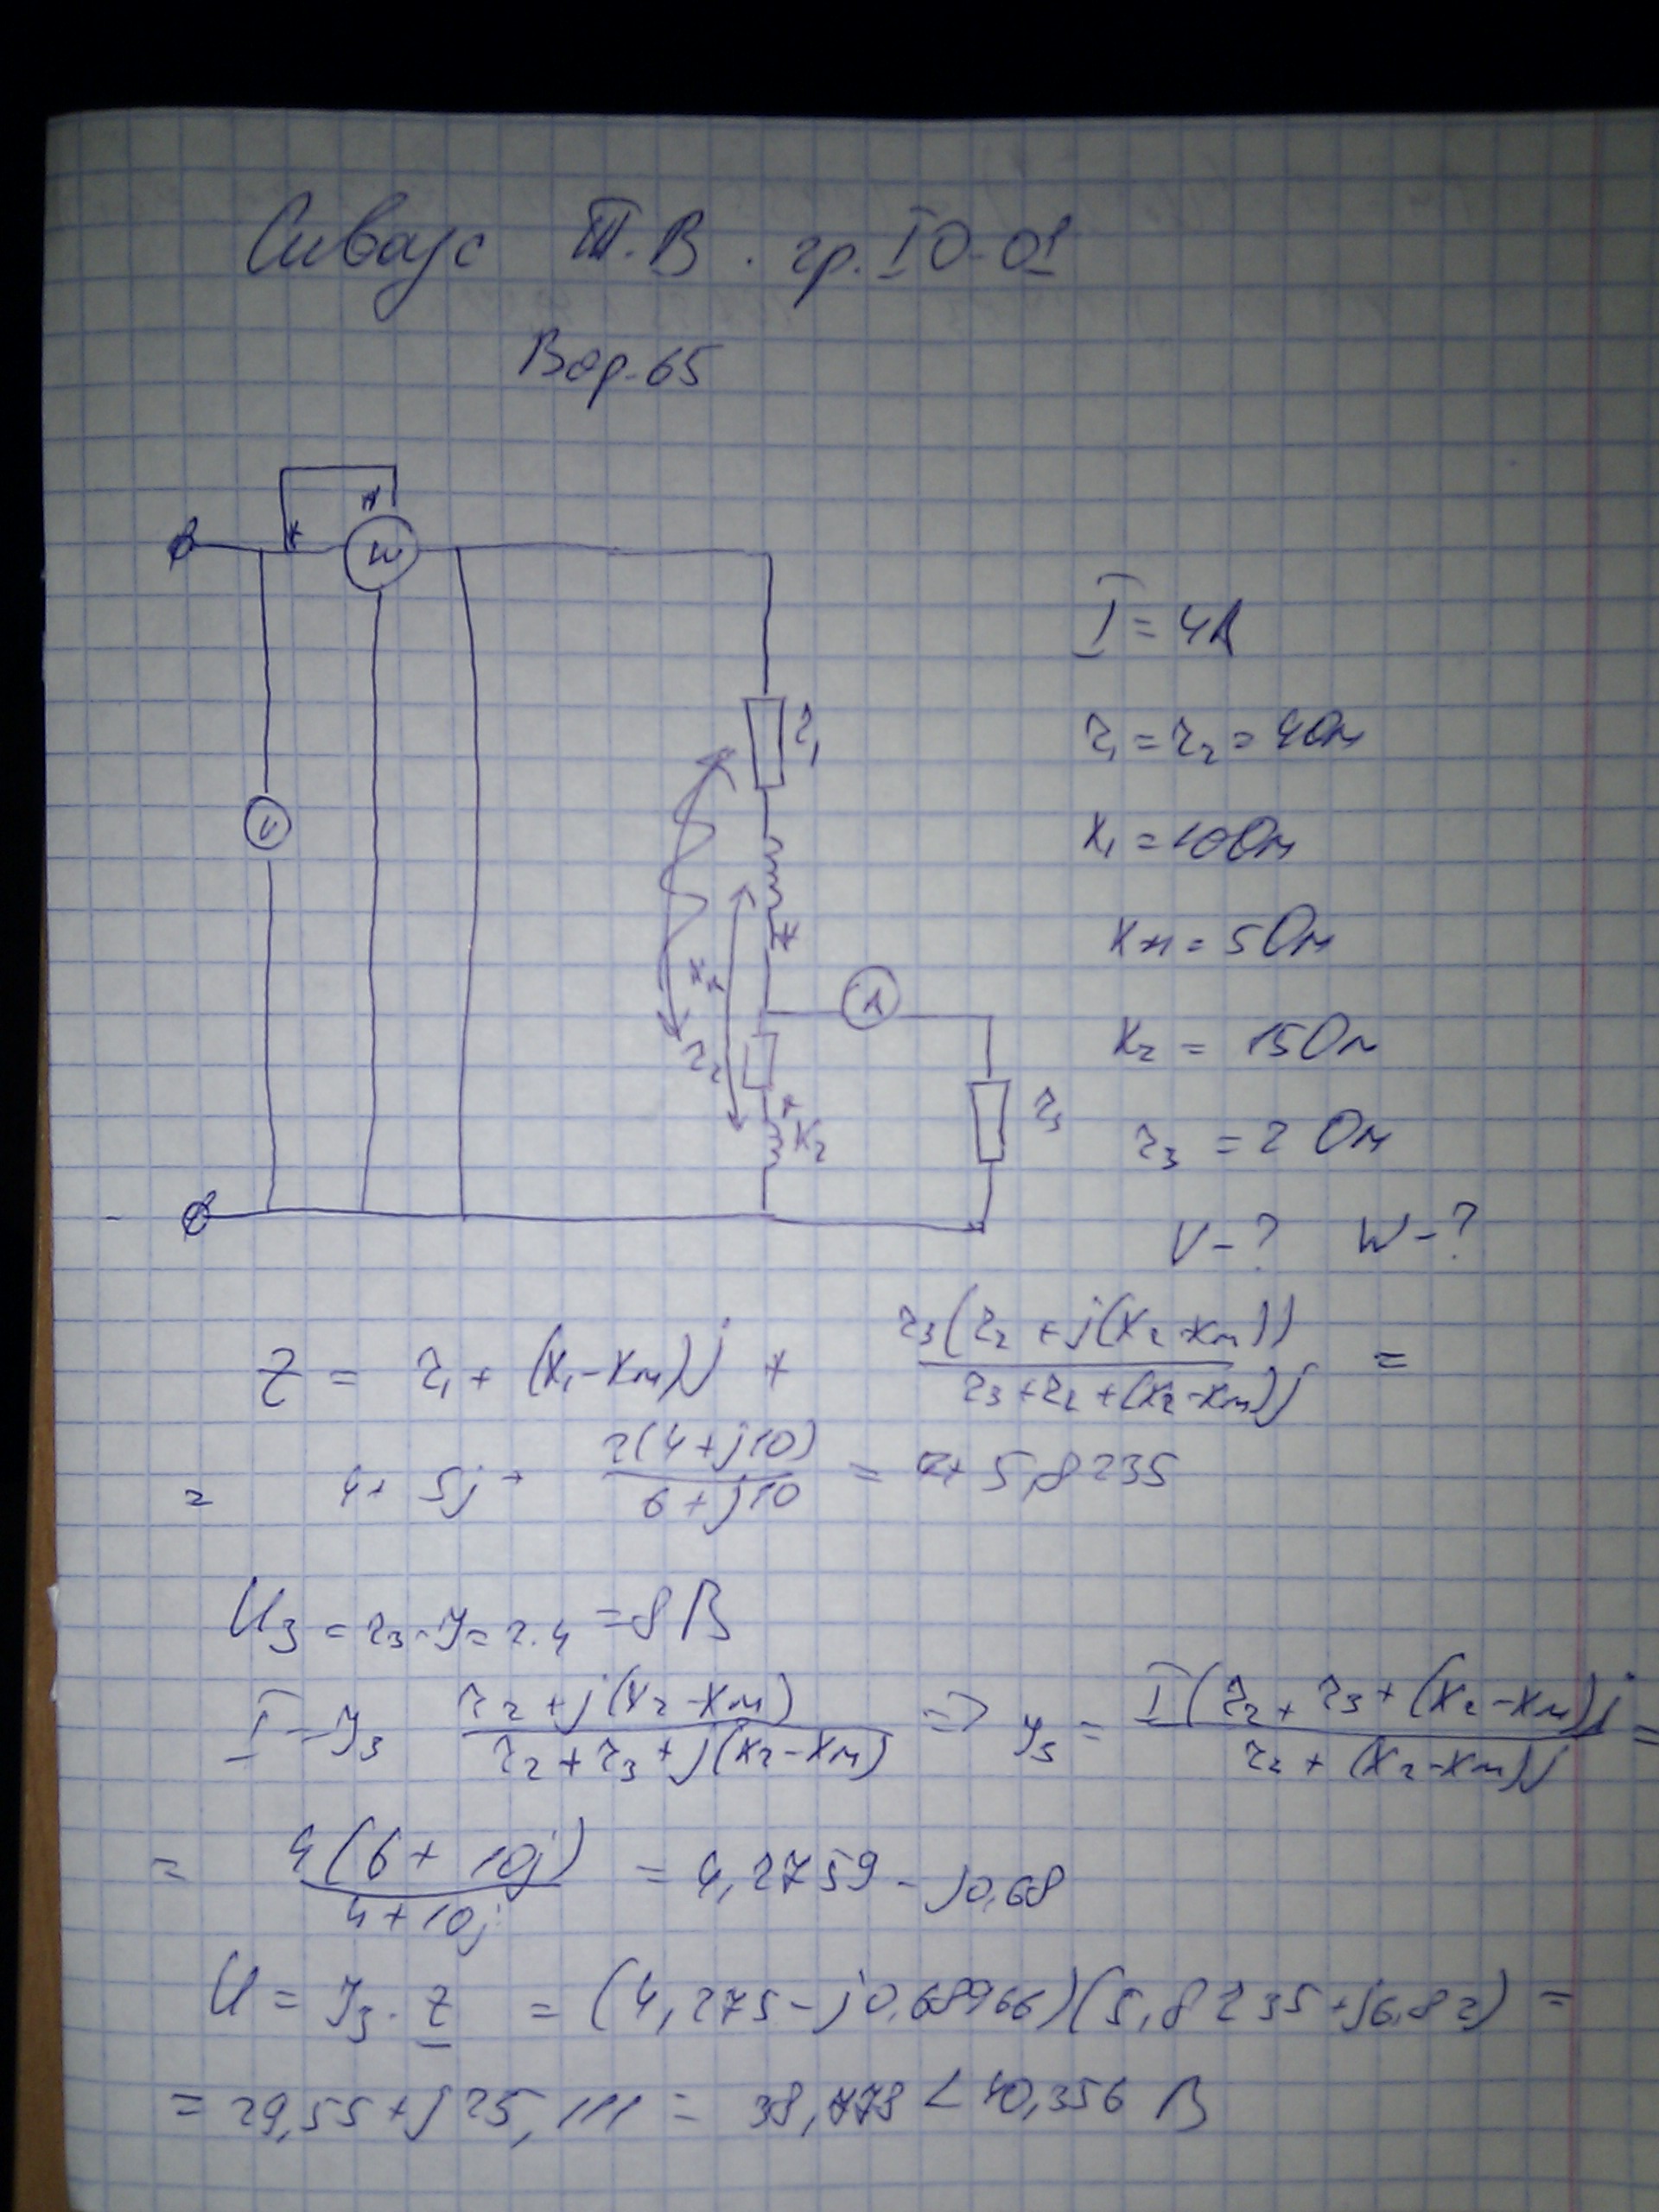 Т.В. гр. ІО-01
Вар. 65
W
V
A
r₁
*
xм
r₂
*
x₂
r₃
I = 4A
r₁ = r₂ = 4 Ом
x₁ = 10 Ом
xм = 5 Ом
x₂ = 15 Ом
r₃ = 2 Ом
V - ? W - ?
Z = r₁ + (x₁ - xм)j + r₃(r₂ + j(x₂ - xм)) / r₃ + r₂ + (x₂ - xм)j =
= 4 + 5j + 2(4 + j10) / 6 + j10 = 5,8235
U₃ = r₃ · I = 2 · 4 = 8 В
I = I₃ r₂ + j(x₂ - xм) / r₂ + r₃ + j(x₂ - xм) => I₃ = I(r₂ + r₃ + (x₂ - xм)j / r₂ + (x₂ - xм)j =
= 4(6 + 10j) / 4 + 10j = 4,2759 - j0,68
U = I₃ · Z = (4,275 - j0,68966)(5,8235 + j6,82) =
= 29,55 + j25,111 = 38,778 < 40,356 В